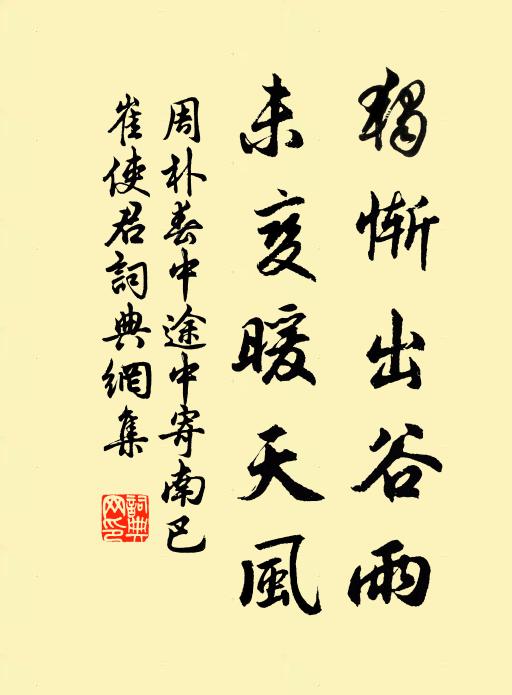 獨慚出谷雨
未變暖天風
周朴春中途中寄南巴
崔使君詞典網集
詞典
网印